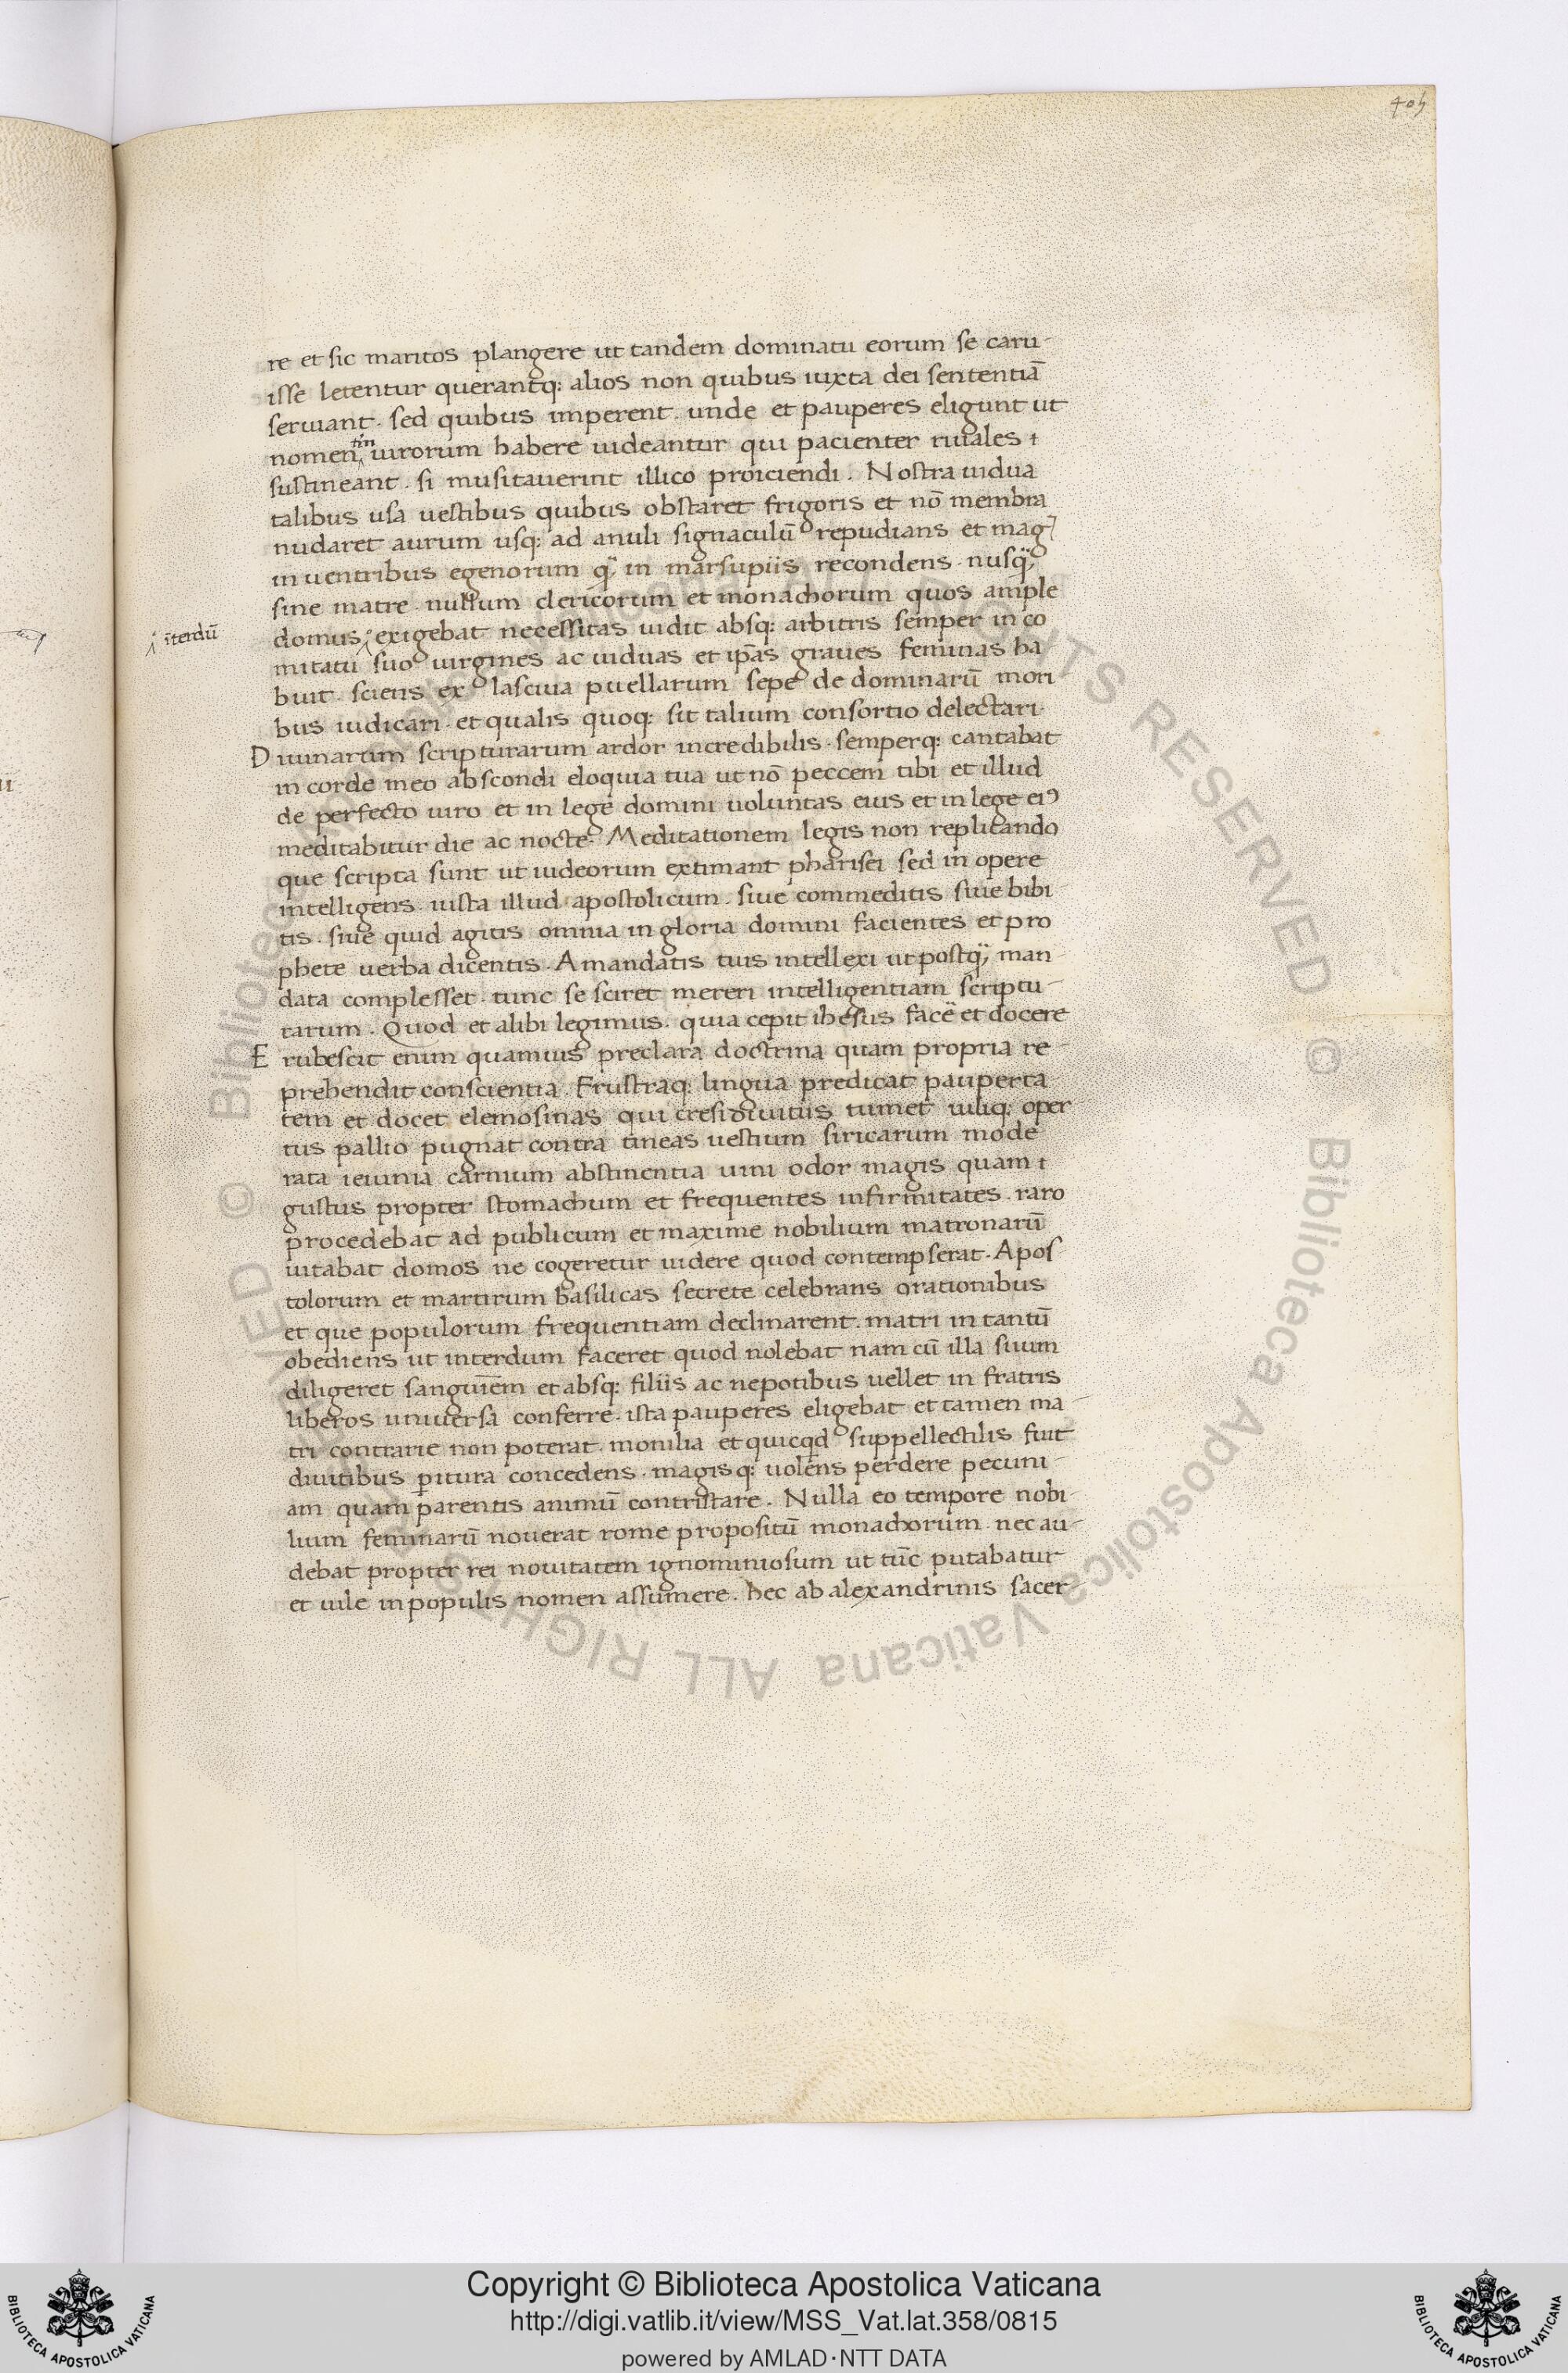 405
re et sic maritos plangere ut tandem dominatu eorum se caru-
isse letentur querantq: alios non quibus iuxta dei sententiā
seruiant. sed quibus imperent. unde et pauperes eligunt ut
nomen tm̄ uirorum habere uideantur qui pacienter riuales
sustineant. si musitauerint illico proiciendi. Nostra uidua
talibus usa uestibus quibus obstaret frigoris et nō membra
nudaret aurum usq: ad anuli signaculū repudians et mag
in uentribus egenorum q̃ in marsupiis recondens. nusq̃
sine matre. nullum clericorum et monachorum quos ample
īterdū
domus exigebat necessitas uidit absq: arbitris semper in co
mitatu suo uirgines ac uiduas et ip̄as graues feminas ha
buit. sciens ex lasciuia puellarum sepe de dominarū mori
bus iudicari. et qualis quoq: sit talium consortio delectari.
Diuinarum scripturarum ardor incredibilis. semperq: cantabat
in corde meo abscondi eloquia tua ut nō peccem tibi et illud
de perfecto uiro et in lege domini uoluntas eius et in lege eiꝰ
meditabitur die ac nocte. Meditationem legis non replicando
que scripta sunt ut iudeorum extimant pharisei sed in opere
intelligens. iusta illud apostolicum. siue commeditis siue bibi-
tis. siue quid agitis omnia in gloria domini facientes et pro
phete uerba dicentis. A mandatis tuis intellexi ut postq̃ man-
data complesset. tunc se sciret mereri intelligentiam scriptu-
rarum. Quod et alibi legimus. quia cepit ihesus facẽ et docere
Erubescit enim quamuis preclara doctrina quam propria re-
prehendit conscientia. Frustraq: lingua predicat pauperta
tem et docet elemosinas qui cresi diuitiis tumet uiliq: oper
tus pallio pugnat contra tineas uestium siricarum mode
rata ieiunia carnium abstinentia uini odor magis quam
gustus propter stomachum et frequentes infirmitates. raro
procedebat ad publicum et maxime nobilium matronarū
uitabat domos ne cogeretur uidere quod contempserat. Apos
tolorum et martirum basilicas secrete celebrans orationibus
et que populorum frequentiam declinarent. matri in tantū
obediens ut interdum faceret quod nolebat nam cū illa suum
diligeret sanguiēm et absq: filiis ac nepotibus uellet in fratris
liberos uniuersa conferre. ista pauperes eligebat et tamen ma-
tri contrarie non poterat. monilia et quicq̄d suppellectilis fuit
diuitibus ꝑitura concedens. magisq: uolens perdere pecuni-
am quam parentis animū contristare. Nulla eo tempore nobi-
lium feminarū nouerat rome propositū monachorum. nec au-
debat propter rei nouitatem ignominiosum ut tūc putabatur
et uile in populis nomen assumere. hec ab alexandrinis sacer-
© Biblioteca Apostolica Vaticana ALL RIGHTS RESERVED
Copyright © Biblioteca Apostolica Vaticana
http://digi.vatlib.it/view/MSS_Vat.lat.358/0815
powered by AMLAD·NTT DATA
BIBLIOTECA APOSTOLICA VATICANA
BIBLIOTECA APOSTOLICA VATICANA